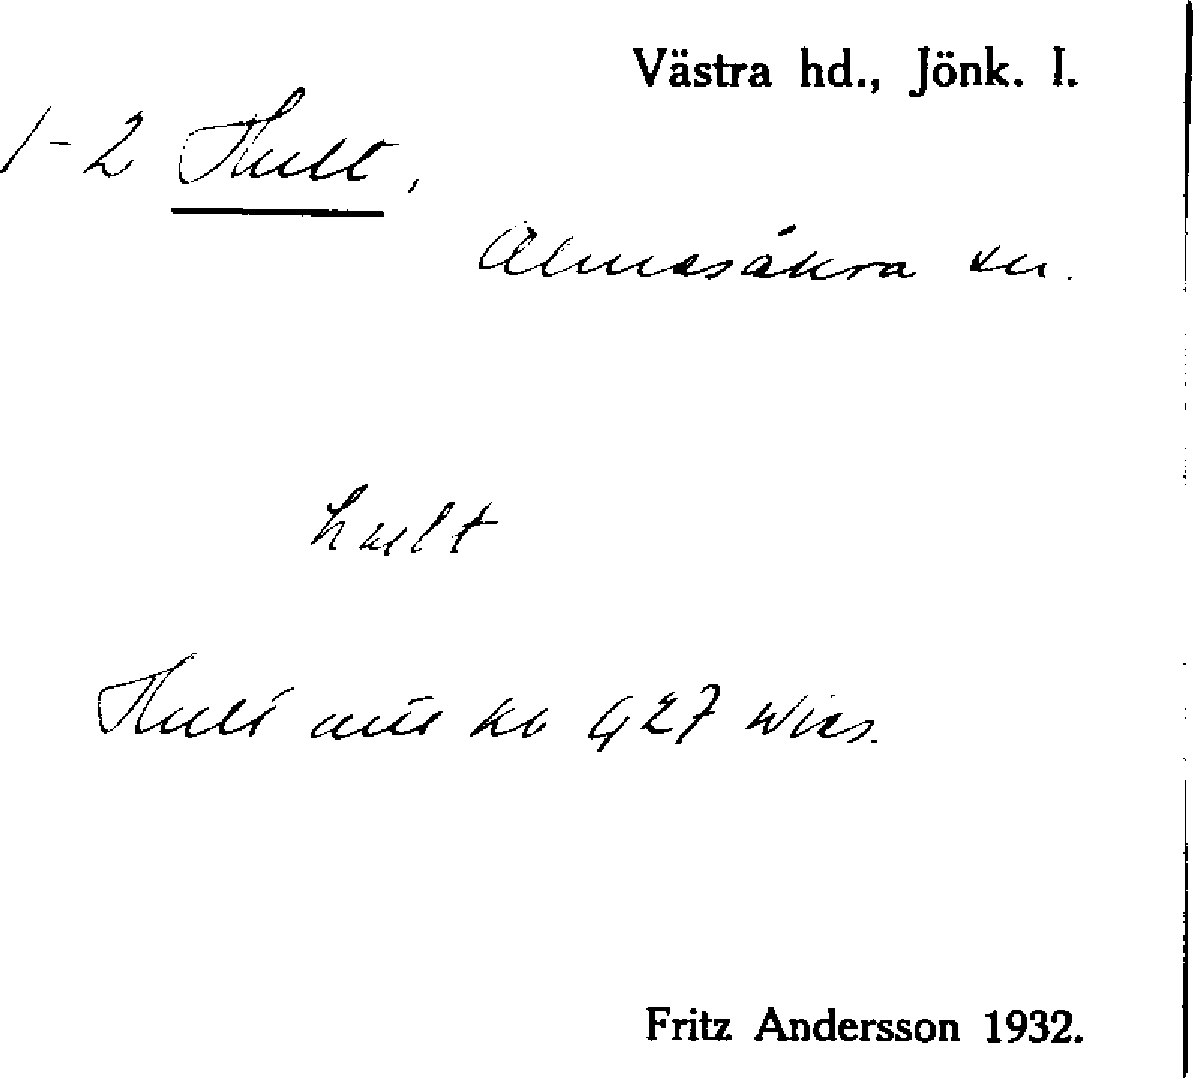 Västra hd., Jönk. l.
1-2 Hult,
Almesåkra sn.
hult
Hult
Fritz Andersson 1932.